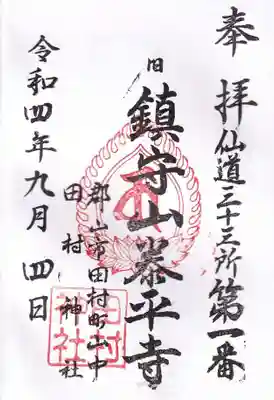 奉拝
仙道三十三所第一番
旧
鎮守山泰平寺
郡山市田村町山中
田村神社
令和四年九月四日
田村
神社